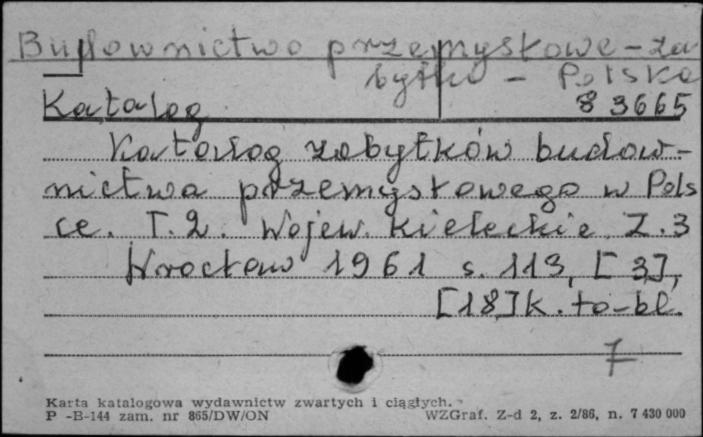 Budownictwo przemysłowe - za
bytki - Polska
Katalog 83665
Katalog zabytków budow-
nictwa przemysłowego w Pols
ce. T.2. Wojew. kieleckie Z.3
Wrocław 1961 s. 113, [3],
[18] k. to-bl.
7
Karta katalogowa wydawnictw zwartych i ciągłych.
P -B-144 zam. nr 865/DW/ON WZGraf. Z-d 2, z. 2/86, n. 7 430 000